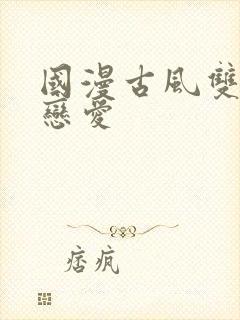 國漫古風雙
戀愛
痞疯